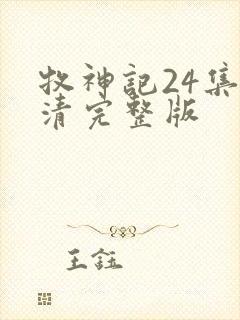 牧神記24集
清完整版
王鈺